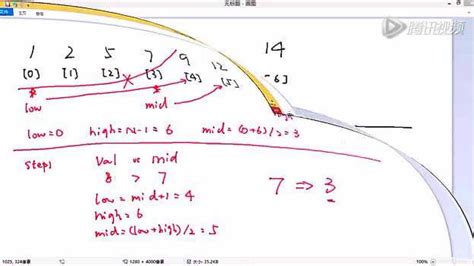 无标题 - 画图
腾讯视频
1 2 5 7 9 12 14
[0] [1] [2] [3] [4] [5] -6]
low mid
low=0 high=N-1=6 mid=(0+6)/2=3
step1 val vs mid
8 > 7
low=mid+1=4
high=6
mid=(low+high)/2=5
7 ⇒ 3
1025, 324像素 1280 × 4000像素 大小: 35.2KB 100%